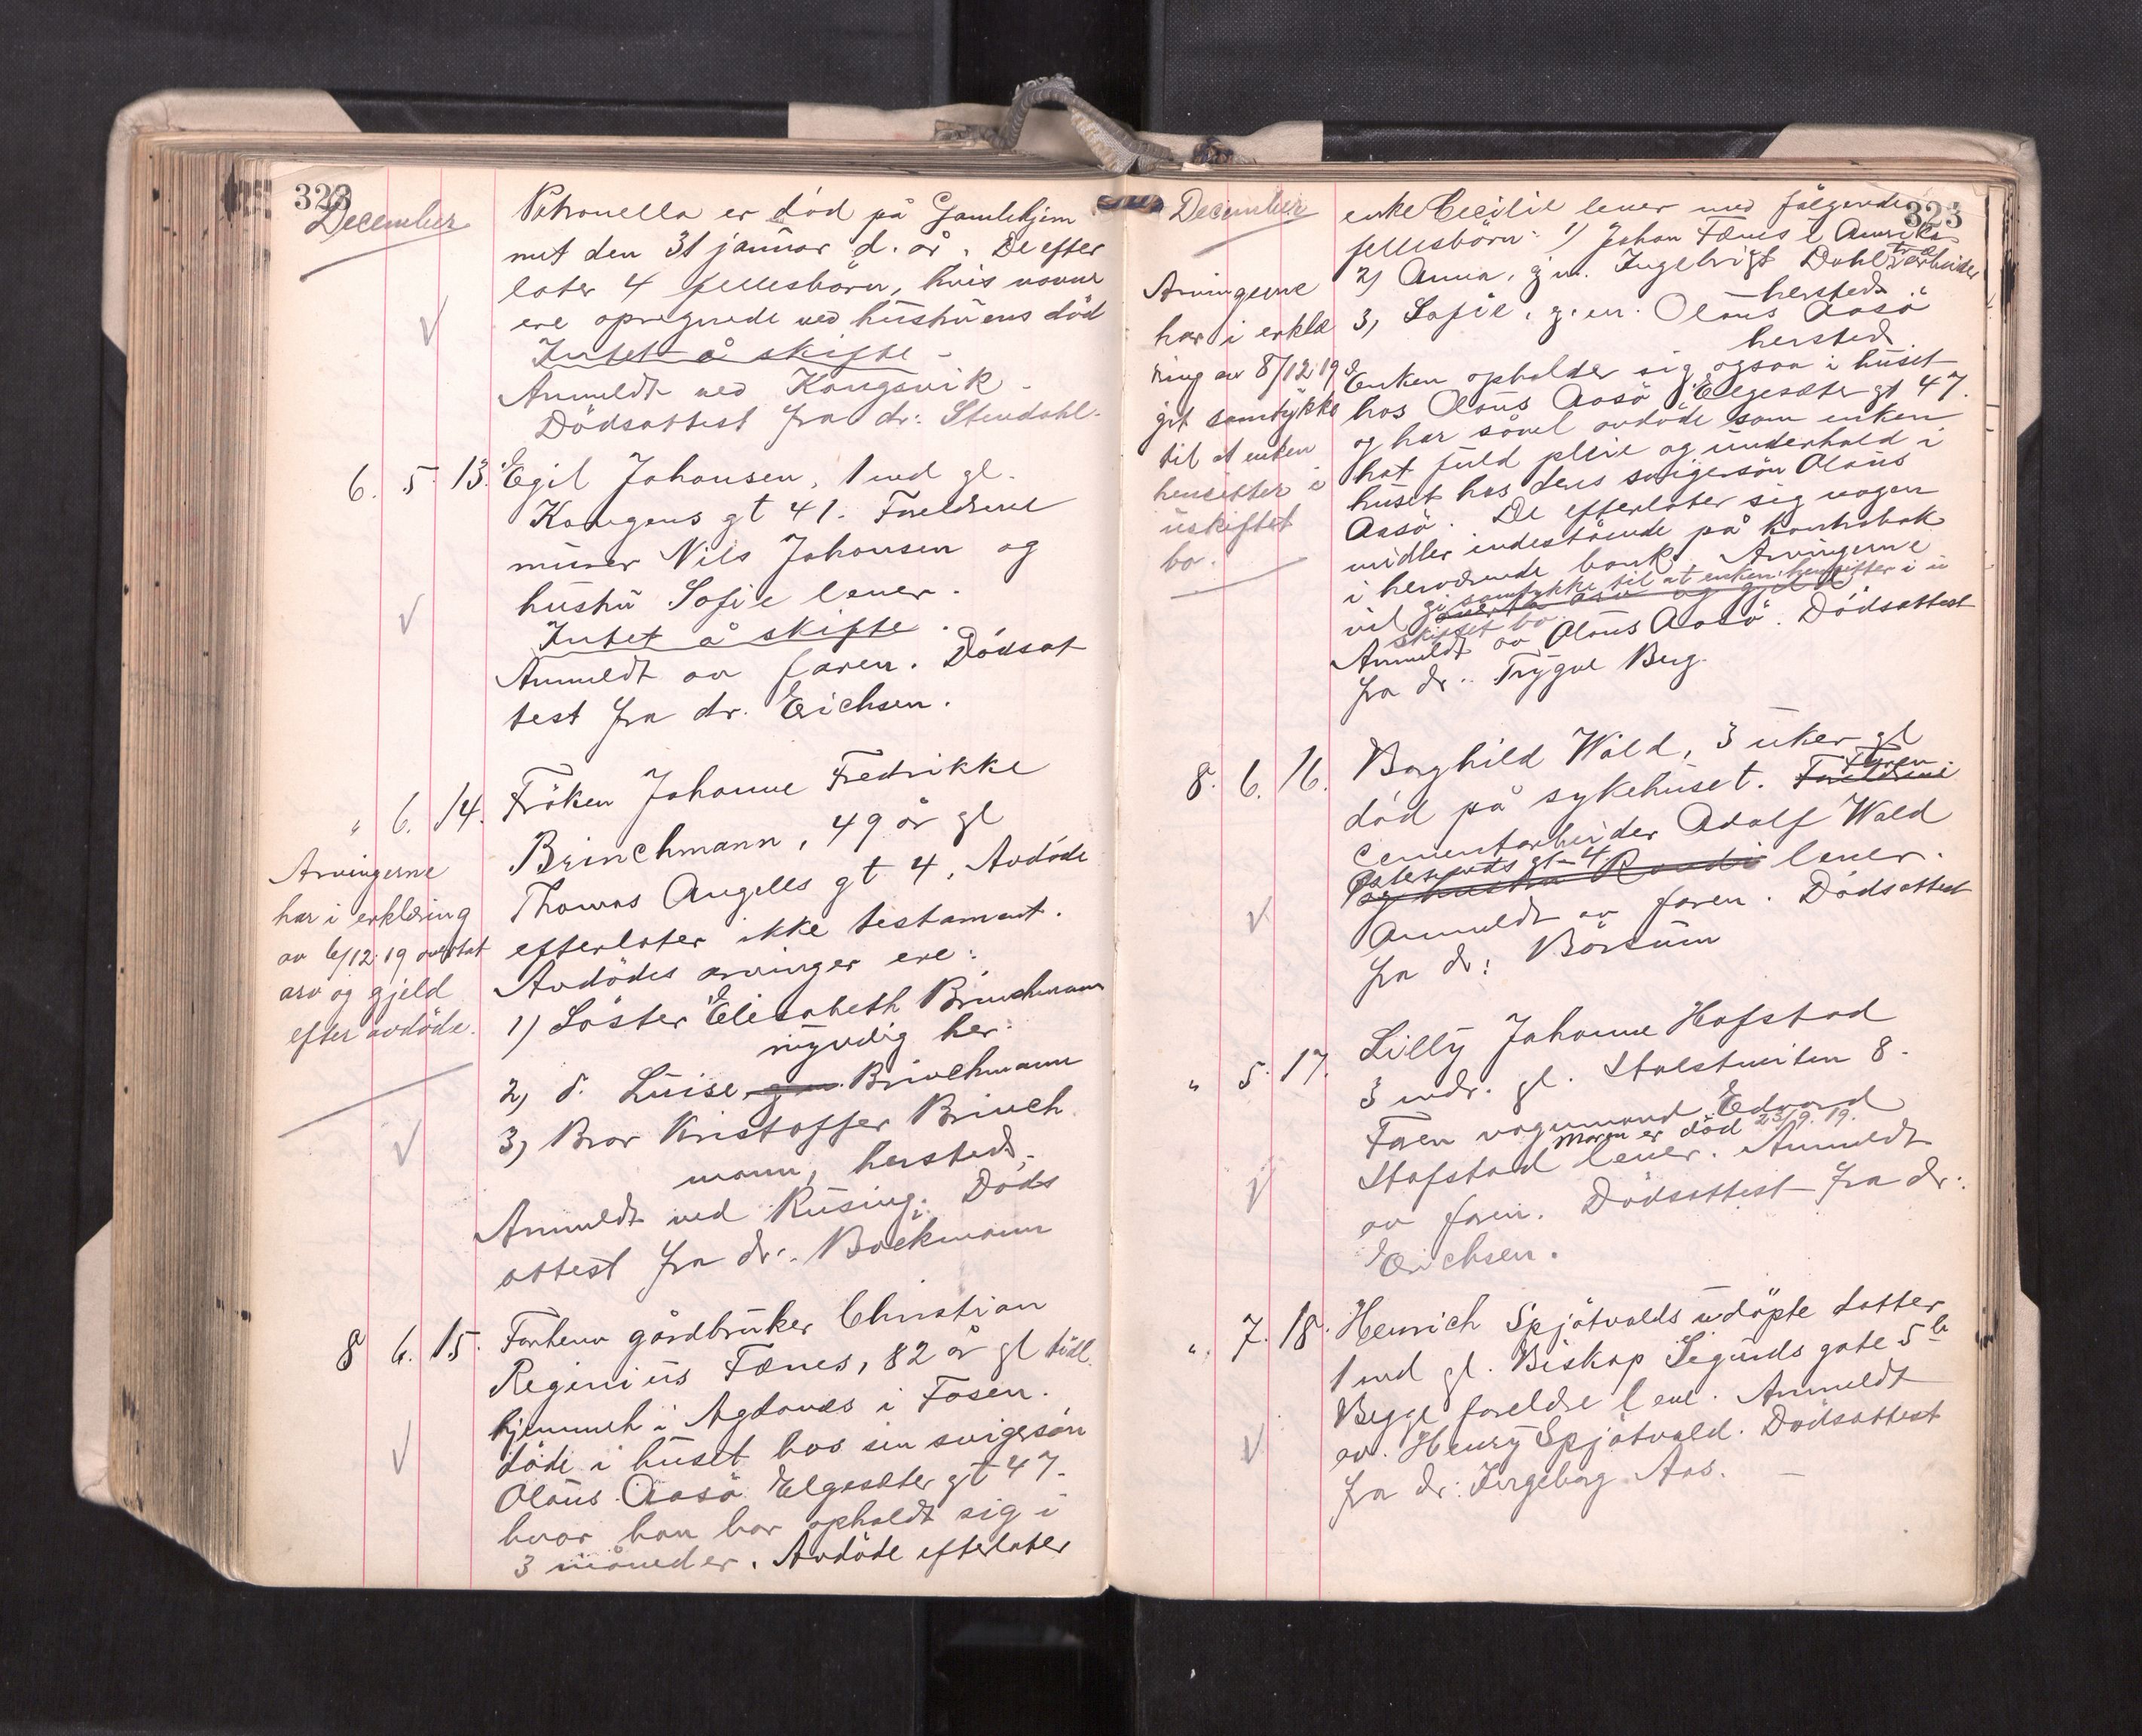 323
December
Petronella er död på Gamlehjem
met den 31 januar d. år. De efter
later 4 fellesbörn, hvis navne
ere opregnede ved hustruens död
Intet å skifte -
Anmeldt ved Kongsvik -
Dödsattest fra dr: Stendahl.
6. 5. 13. Egil Johansen, 1 md gl.
Kongens gt 41. Foreldrene
murer Nils Johansen og
hustru Sofie lever.
Intet å skifte.
Anmeldt av faren. Dödsat
test fra dr. Erichsen.
" 6. 14. Fröken Johanne Fredrikke
Brinchmann, 49 år gl
Thomas Angells gt 4, Avdöde
efterlater ikke testament.
Avdödes arvinger ere:
1) Söster Elisabeth Brinchmann
myndig her.
2, d. Luise g.m. Brinchmann
3, Bror Kristoffer Brinch
mann, hersteds.
Anmeldt ved Rusing. Döds
attest fra dr: Bäckmann
Arvingerne
har i erklæring
av 6/12.19 overtat
arv og gjeld
efter avdöde.
8 6. 15. Forhenv gårdbruker Christian
Reginius Fænes, 82 år gl tidl.
hjemmeh i Agdanes i Fosen.
döde i huset hos sin svigersön
Olaus Aasö Elgesæter gt 47.
hvor han har opholdt sig i
3 måneder. Avdöde efterlater
December
323
enke Cecilie lever med fölgende
fellesbörn: 1) Johan Fænes i Amerika
2) Anna, g.m. Ingebrigt Dahl, arbeider
hersteds
3, Sofie, g.m. Olaus Aasö
hersteds
Enken opholder sig ogsaa i huset
hos Olaus Aasö Elgesæter gt 47.
og har såvel avdöde som enken
hat fuld pleie og underhold i
huset hos deres svigersön Olaus
Aasö. De efterlater sig nogen
midler indestående på kontrabok
i herværende bank. Arvingerne
gi samtykke til at enken hensitter i u
vil overta arv og gjeld
skiftet bo.
Anmeldt av Olaus Aasö. Dödsattest
fra dr.. Trygve Berg.
Arvingerne
har i erklæ
ring av 8/12.19
git samtykke
til at enken
hensitter i
uskiftet
bo.
8. 6. 16. Borghild Wold, 3 uker gl
Faren
död på sykehuset. Foreldrene
cementarbeider Adolf Wold
Östersunds gt 4.
og hustru Randi lever.
Anmeldt av faren. Dödsattest
fra dr: Börsum
" 5. 17. Lilly Johanne Hofstad
3 mdr. gl. Stolstveiten 8.
Faren vognmand Edvard
moren er död 23/9.19.
Hofstad lever. Anmeldt
av faren. Dödsattest fra dr.
Erichsen.
". 7. 18. Henrich Spjötvolds udöpte datter
1 md gl. Biskop Sigurds gate 5 b
Begge foreldre leve. Anmeldt
av. Henry Spjötvold. Dödsattest
fra dr: Ingeborg Aas. -